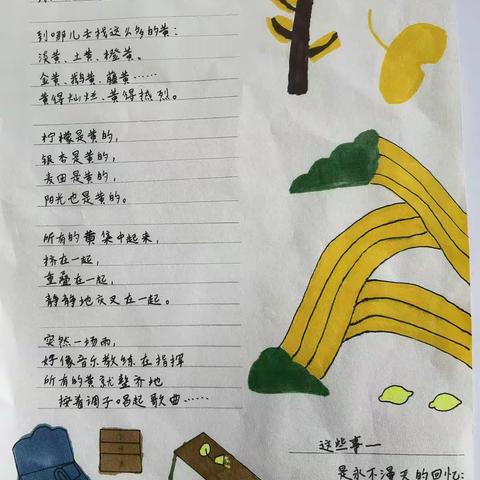 到哪儿去找这么多的黄:
淡黄、土黄、橙黄、
金黄、鹅黄、藤黄……
黄得灿烂、黄得热烈。
柠檬是黄的,
银杏是黄的,
麦田是黄的,
阳光也是黄的。
所有的黄集中起来,
挤在一起,
重叠在一起,
静静地交叉在一起。
突然一场雨,
好像音乐教练在指挥
所有的黄就整齐地
按着调子唱起歌曲……
这些事一
是永不漫灭的回忆: